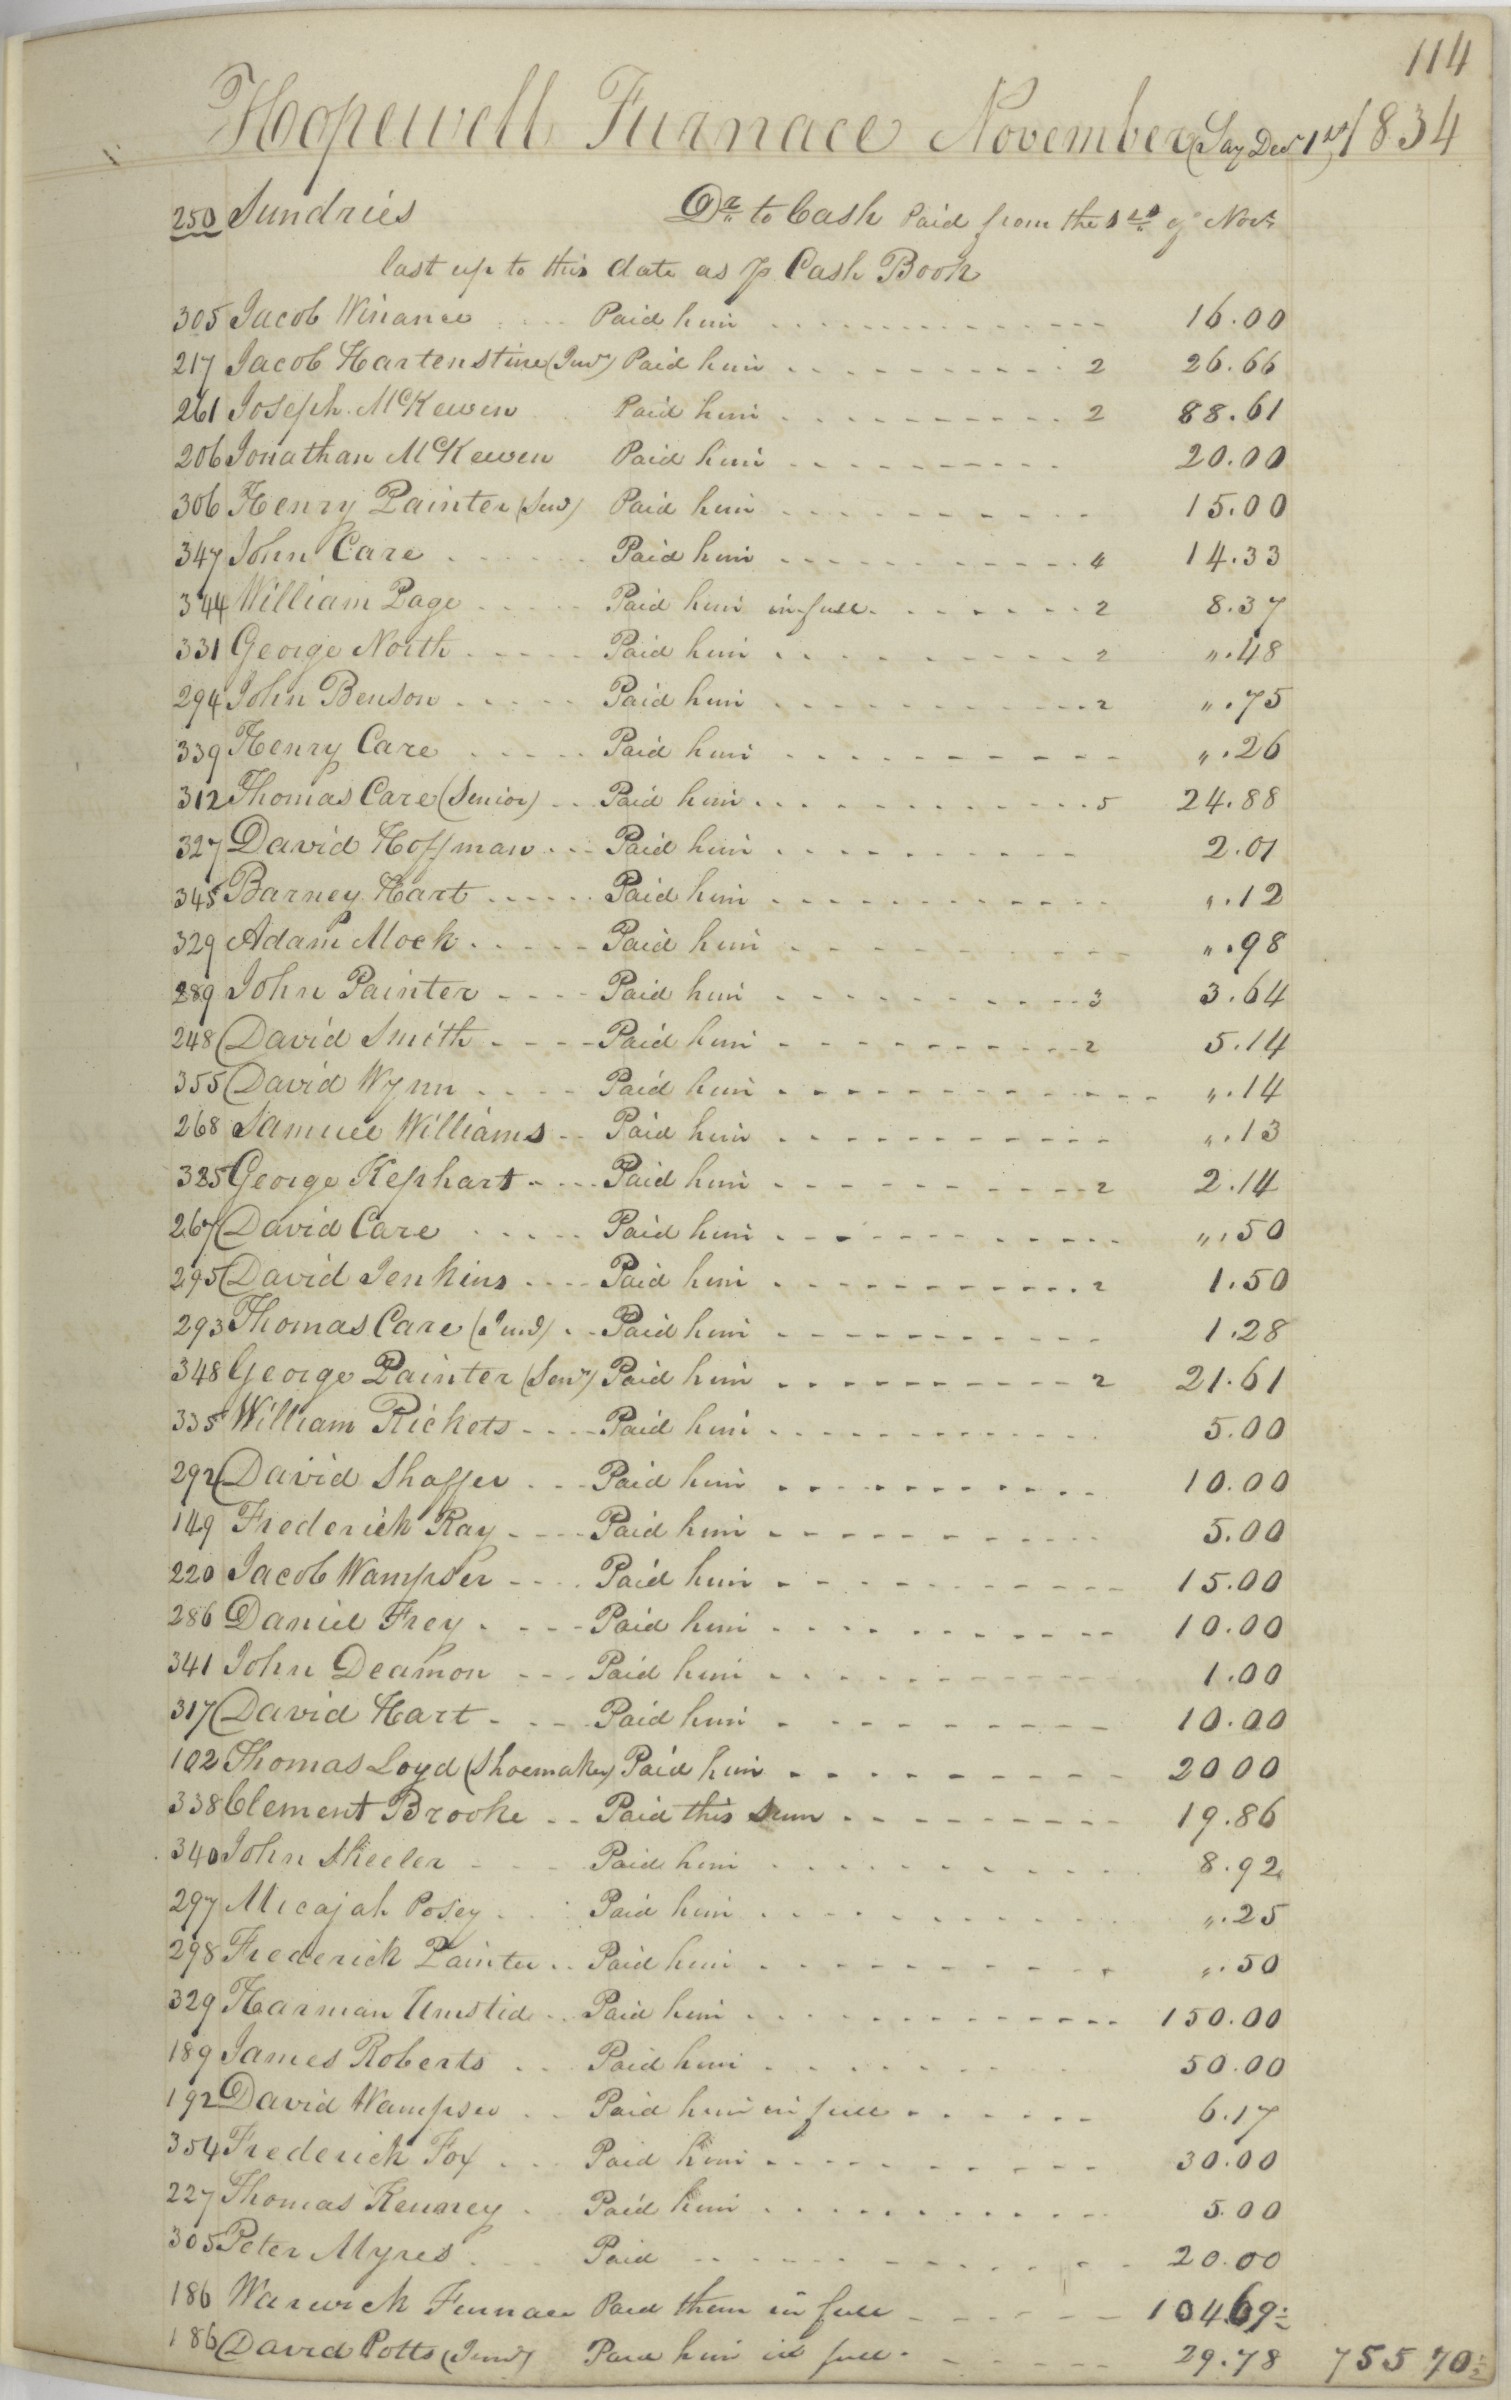 114
Hopewell Furnace November (Say Decr 1st) 1834
250 Sundries Dr to Cash Paid from the 1st of Novr
last up to this date as p Cash Book
305 Jacob Winance Paid him 16.00
217 Jacob Hartenstine (Junr) Paid him 2 26.66
261 Joseph McKewen Paid him 2 88.61
206 Jonathan McKewen Paid him 20.00
306 Henry Painter (Senr) Paid him 15.00
347 John Care Paid him 4 14.33
344 William Page Paid him in full 2 8.37
331 George North Paid him 2 ".48
294 John Benson Paid him 2 ".75
339 Henry Care Paid him ".26
312 Thomas Care (Senior) Paid him 5 24.88
327 David Hoffman Paid him 2.01
345 Barney Hart Paid him ".12
329 Adam Mock Paid him ".98
289 John Painter Paid him 3 3.64
248 David Smith Paid him 2 5.14
355 David Wynn Paid him ".14
268 Samuel Williams Paid him ".13
325 George Kephart Paid him 2 2.14
267 David Care Paid him ".50
295 David Jenkins Paid him 2 1.50
293 Thomas Care (Junr) Paid him 1.28
348 George Painter (Senr) Paid him 2 21.61
335 William Rickets Paid him 5.00
292 David Shaffer Paid him 10.00
149 Frederick Ray Paid him 5.00
220 Jacob Wampser Paid him 15.00
286 Daniel Frey Paid him 10.00
341 John Deamon Paid him 1.00
317 David Hart Paid him 10.00
102 Thomas Loyd (Shoemaker) Paid him 20 00
338 Clement Brooke Paid this sum 19.86
340 John Sheeler Paid him 8.92
297 Micajah Posey Paid him ".25
298 Frederick Painter Paid him ".50
329 Harman Umstid Paid him 150.00
189 James Roberts Paid him 50.00
192 David Wampser Paid him in full 6.17
354 Frederick Fox Paid him 30.00
227 Thomas Kenney Paid him 5.00
305 Peter Myres Paid 20.00
186 Warwick Furnace Paid them in full 104 69½
186 David Potts (Junr) Paid him in full 29.78 755 70½